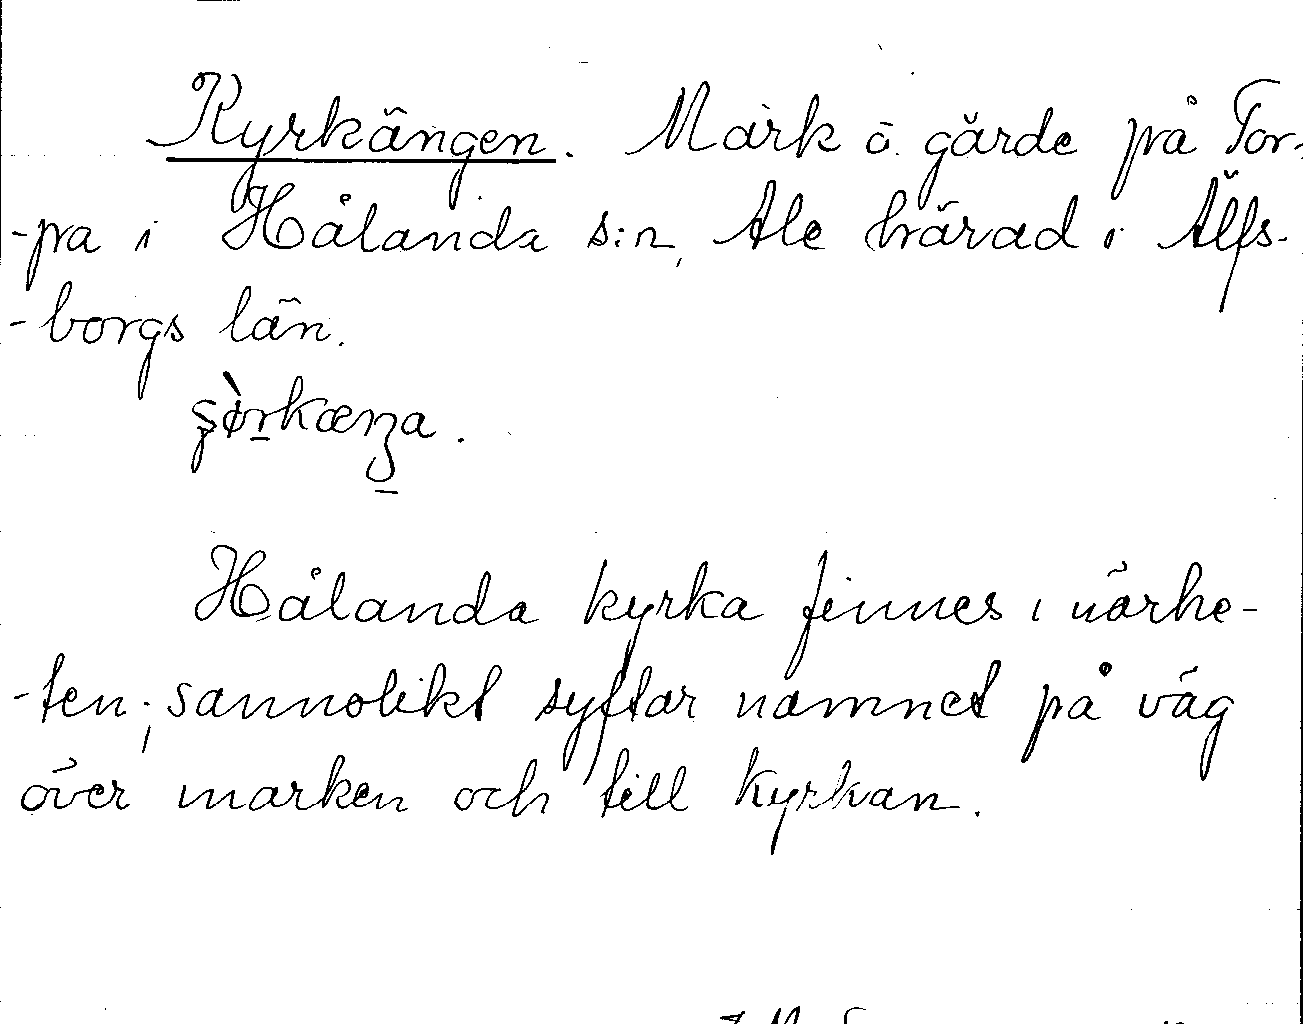 Kyrkängen. Mark o. gärde på Tor-
-pa i Hålanda s:n, Ale härad i Älfs-
-borgs län.
Hålanda kyrka finnes i närhe-
-ten; sannolikt syftar namnet på väg
över marken och till kyrkan.